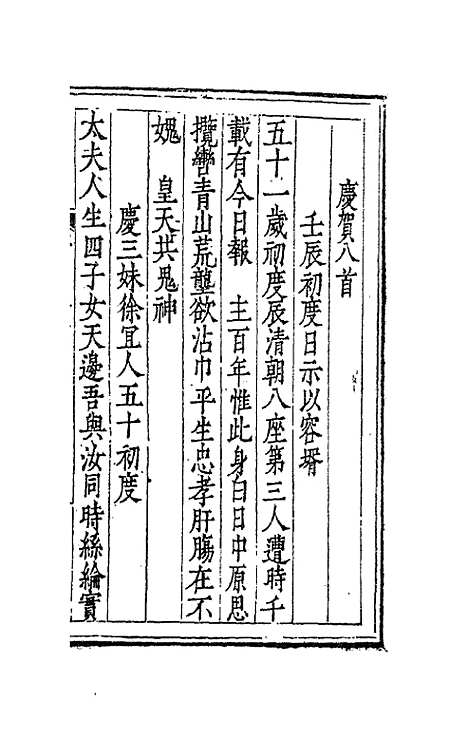 慶賀八首
壬辰初度日示以容壻
五十一歲初度辰清朝八座第三人遭時千
載有今日報　主百年惟此身白日中原思
攬轡青山荒壟欲沾巾平生忠孝肝腸在不
媿　皇天共鬼神
慶三妹徐宜人五十初度
太夫人生四子女天邊吾與汝同時絲綸實